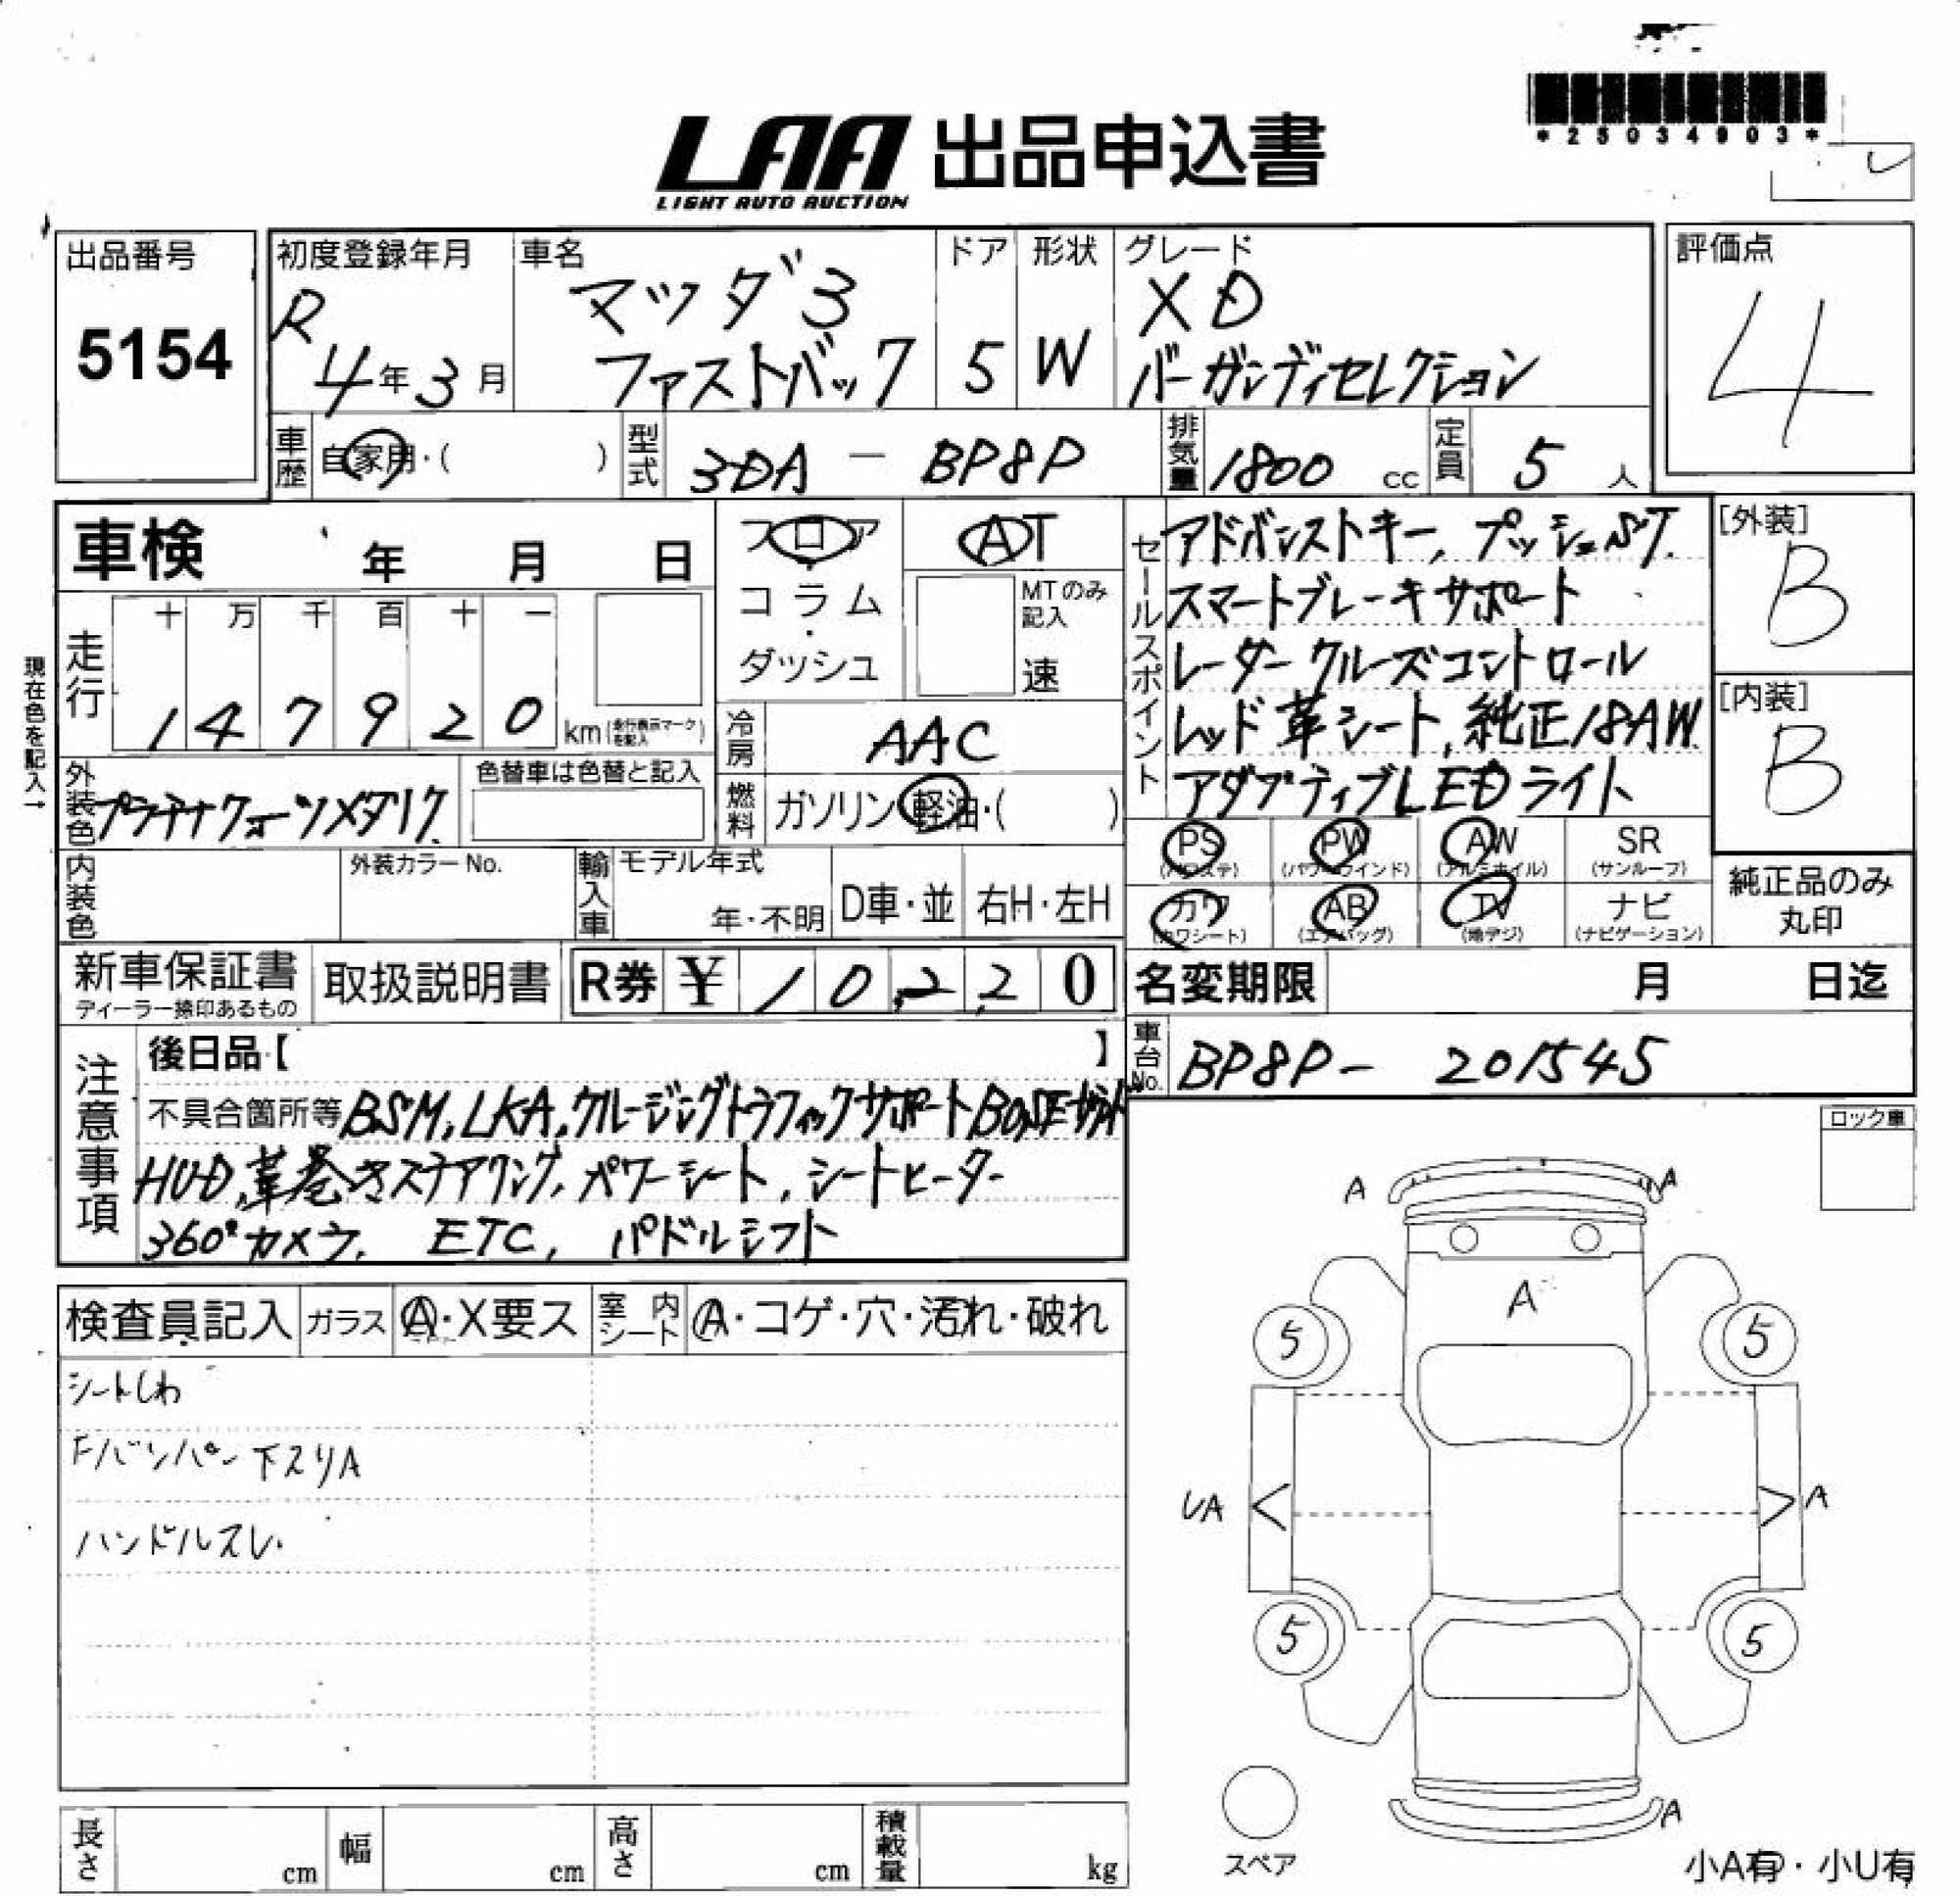 *25034903*
LAA 出品申込書
LIGHT AUTO AUCTION
出品番号
5154
初度登録年月
R
4年3月
車名
マツダ3
ファストバック
ドア
5
形状
W
グレード
XD
バーガンディセレクション
評価点
4
車歴
自家用・( )
型式
3DA - BP8P
排気量
1800 cc
定員
5 人
車検 年 月 日
フロア
コラム
・
ダッシュ
AT
MTのみ
記入
速
セールスポイント
アドバンストキー, プッシュST.
スマートブレーキサポート
レーダークルーズコントロール
レッド革シート, 純正18AW
アダプティブLEDライト
[外装]
B
[内装]
B
現在色を記入→
走行
十 万 千 百 十 一
1 4 7 9 2 0 km(走行表示マークを記入)
冷房
AAC
燃料
ガソリン・軽油・( )
外装色
プラチナクォーツメタリク
色替車は色替と記入
内装色
外装カラーNo.
輸入車
モデル年式
年・不明
D車・並
右H・左H
PS
(パワステ)
PW
(パワーウインド)
AW
(アルミホイル)
SR
(サンルーフ)
カワ
(カワシート)
AB
(エアバッグ)
TV
(地デジ)
ナビ
(ナビゲーション)
純正品のみ
丸印
新車保証書
ディーラー捺印あるもの
取扱説明書
R券 ¥ 10,220
名変期限 月 日迄
車台No.
BP8P- 201545
注意事項
後日品【 】
不具合箇所等 BSM, LKA, クルージングトラフィックサポート BOSE
HUD, 革巻きステアリング, パワーシート, シートヒーター
360°カメラ, ETC, パドルシフト
ロック車
検査員記入
ガラス
A・X要ス
室内シート
A・コゲ・穴・汚れ・破れ
シートしわ
Fバンパー下スリA
ハンドルスレ
A
A
A
5
5
UA
A
5
5
A
スペア
小A有・小U有
長さ cm
幅 cm
高さ cm
積載量 kg